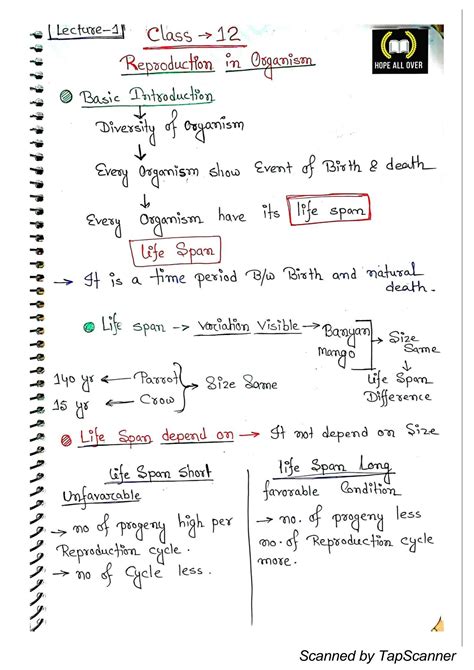 Lecture-1
Class → 12
HOPE ALL OVER
Reproduction in Organism
Basic Introduction
Diversity of Organism
Every Organism show Event of Birth & death
Every Organism have its life span
life Span
→ It is a time period B/w Birth and natural
death.
Life span -> variation visible → Banyan
mango
→ Size
Same
life Span
Difference
140 yr ← Parrot
15 yr ← Crow
→ Size Same
Life Span depend on → It not depend on Size
life Span Short
Unfavarcable
→ no of progeny high per
Reproduction cycle.
→ no of Cycle less.
life Span Long
favorable Condition
→ no. of progeny less
no. of Reproduction cycle
more.
Scanned by TapScanner